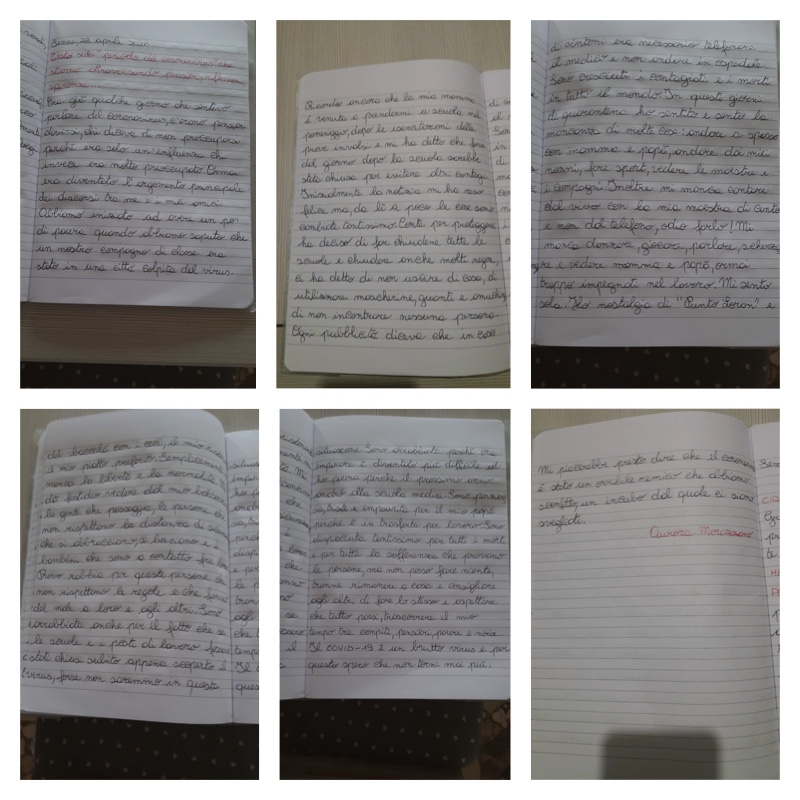 28 aprile 2020
Testo sul "periodo del coronavirus" che
stiamo attraversando: pensieri,
speranze...
Era già qualche giorno che sentivo
parlare del coronavirus, c'erano pensieri
diversi, chi diceva di non preoccuparsi
perché era solo un'influenza chi
invece era molto preoccupato. Ormai
era diventato l'argomento principale
dei discorsi tra me e i miei amici.
Abbiamo iniziato ad avere un po'
di paura quando abbiamo saputo che
un nostro compagno di classe era
stato in una città colpita del virus.
Ricordo ancora che la mia mamma
è venuta a prendermi a scuola nel
pomeriggio, dopo le esercitazioni delle
prove invalsi e mi ha detto che
dal giorno dopo la scuola sarebbe
stata chiusa per evitare altri contagi.
Inizialmente la notizia mi ha reso
felice ma, da lì a poco le cose sono
cambiate tantissimo. Conte per proteggere
ha deciso di far chiudere tutte le
scuole e chiudere anche molti negozi,
ci ha detto di non uscire di casa, di
utilizzare mascherine, guanti e
di non incontrare nessuna persona.
Ogni pubblicità diceva che in caso
di sintomi era necessario telefonare
il medico e non andare in ospedale.
Sono cresciuti i contagiati e i morti
in tutto il mondo. In questi giorni
di quarantena ho sentito e sento la
mancanza di molte cose: andare a spasso
con mamma e papà, andare dai miei
nonni, fare sport, vedere le maestre e
i compagni. Inoltre mi manca cantare
dal vivo con la mia maestra di canto
e non dal telefono, odio farlo! Mi
manca danzare, giocare, parlare,
e vedere mamma e papà, ormai
troppo impegnati nel lavoro. Mi sento
sola. Ho nostalgia di "Punto e
del con i ceci, il mio
il mio piatto preferito. Semplicemente
manca la libertà e la normalità
fastidio vedere dal mio balcone
la gente che passeggia, le persone che
non rispettano la distanza di
che si abbracciano, si baciano e i
bambini che sono a contatto fra loro.
Provo rabbia per queste persone che
non rispettano le regole e che fanno
del male a loro e agli altri. Sono
arrabbiata anche per il fatto che se
le scuole e i posti di lavoro
stati chiusi subito appena scoperto il
virus, forse non saremmo in questa
situazione. Sono arrabbiata perché ora
imparare è diventato più difficile ed
ho paura perché il prossimo anno
andrò alla scuola media. Sono
triste e impaurita per il mio papà
perché è in trasferta per lavoro. Sono
dispiaciuta tantissimo per tutti i morti
e per tutta la sofferenza che provano
le persone, ma non posso fare niente,
tranne rimanere a casa e consigliare
agli altri di fare lo stesso e aspettare
che tutto passi, trascorrere il mio
tempo tra compiti, pensieri, paure e noia.
Il COVID-19 è un brutto virus e per
questo spero che non torni mai più.
Mi piacerebbe presto dire che il
è stato un orribile nemico che abbiamo
sconfitto, un incubo dal quale ci siamo
svegliati.
Aurora